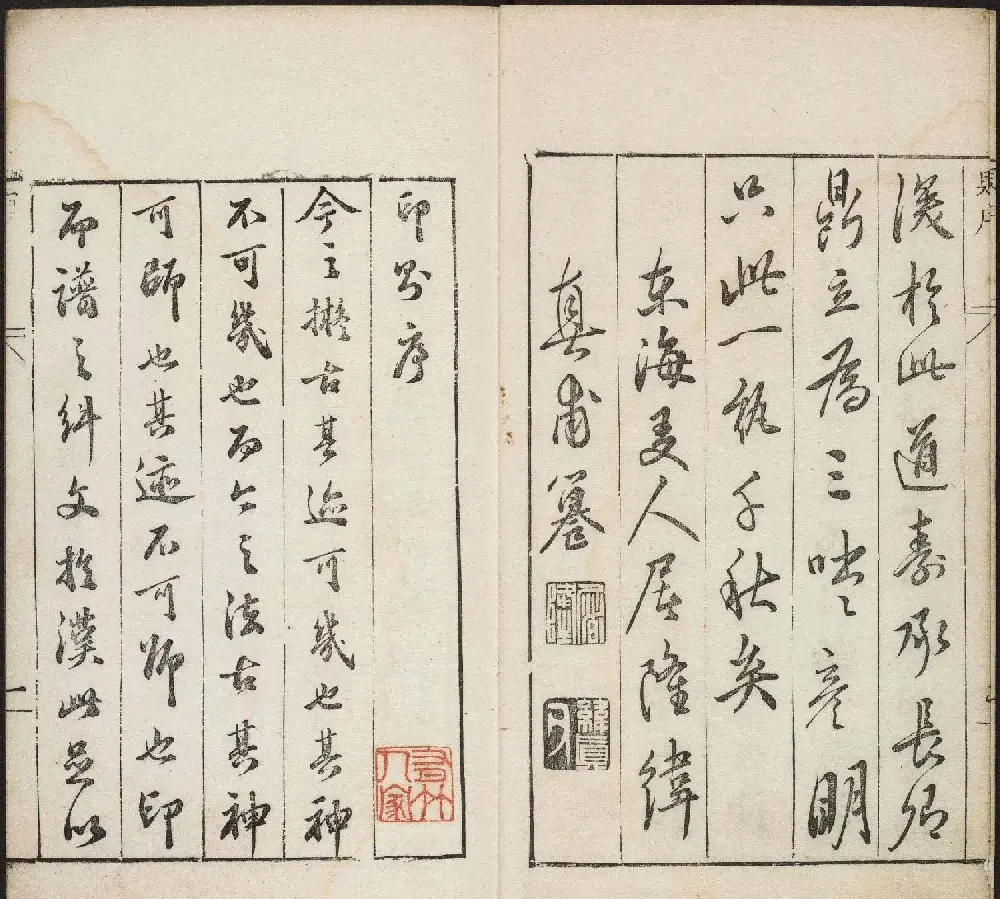 深於此道壽承長卿
鼎立為三咄咄彥明
只此一千秋矣
東海人屠隆緯
真甫
印序
今之擬古其迹可幾也其神
不可幾也而今之法古其神
可師也其迹不可師也印
而譜之文於漢此足以
有竹人家